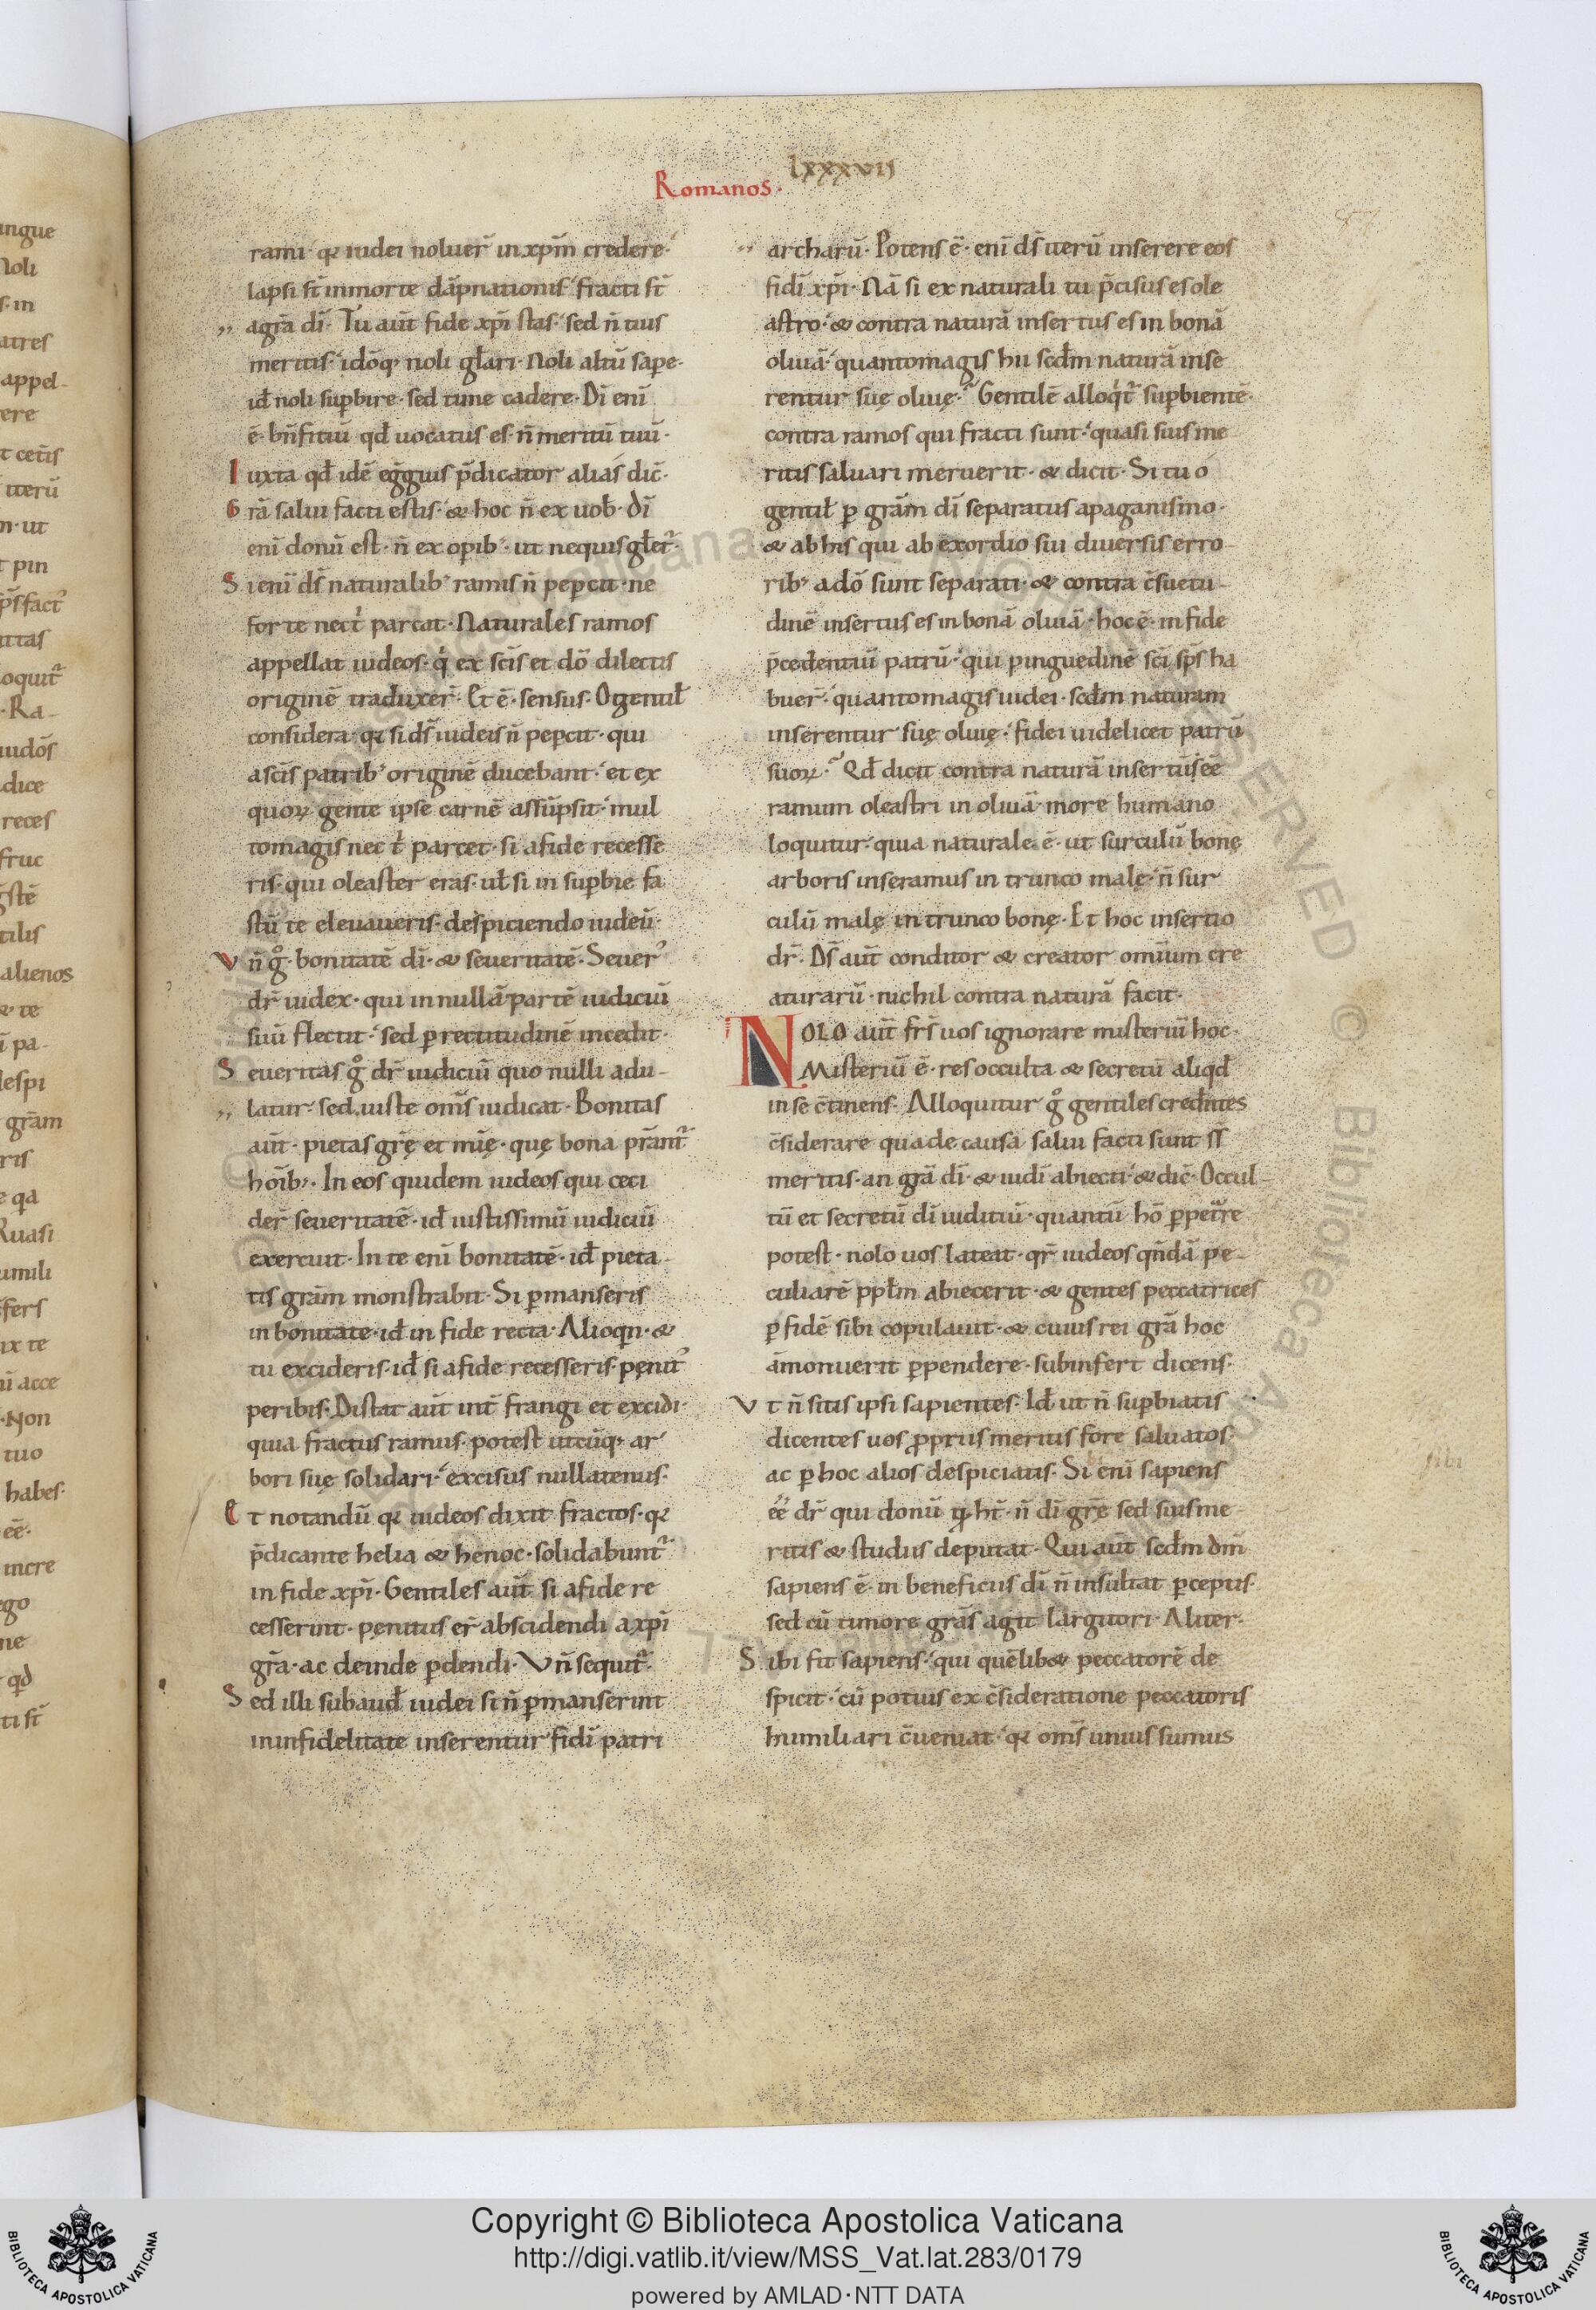 lxxxvii
Romanos.
rami· qꝛ iudei noluer̄ in xp̄m credere·
lapsi st̄ in morte dāpnationis· fracti st̄
a gr̄a dī· Tu aut̄ fide xp̄i stas· sed n̄ tuis
meritis· idōq; noli głari· Noli altū sape·
id̄ noli supbire· sed time cadere· Dī enī
ē· bn̄fitiū qd̄ uocatus es· n̄ meritū tuū·
Iuxta qd̄ idē eḡgius p̄dicator alias dic̄·
Gr̄a salui facti estis· & hoc n̄ ex uob̄· dī
enī donū est· n̄ ex opib;· ut nequis głet᷑·
Si enī ds̄ naturalib; ramis n̄ pepcit· ne
forte nec t' parcat· Naturales ramos
appellat iudeos· q' ex scīs et dō dilectis
originē traduxer̄· Et ē· sensus· O gentił
considera· qꝛ si ds̄ iudeis n̄ pepcit· qui
a scīs patrib; originē ducebant· et ex
quoꝝ gente ipse carnē assūpsit· mul
tomagis nec t' parcet· si a fide recesse
ris· qui oleaster eras· uł si in supbie fa
stū te eleuaueris· despiciendo iudeū·
Vn̄ g° bonitatē dī· & seueritatē· Seuer'
dr̄ iudex· qui in nulla partē iudiciū
suū flectit· sed p rectitudinē incedit·
Seueritas g° dr̄ iudiciū quo nulli adu-
latur· sed iuste om̄s iudicat· Bonitas
aut̄· pietas gr̄ę et mīę· quę bona pr̄ant᷑
hōib;· In eos quidem iudeos qui ceci
der̄ seueritatē· id̄ iustissimū iudiciū
exercuit· In te enī bonitatē· id̄ pieta
tis grām monstrabit· Si pmanseris
in bonitate· id̄ in fide recta· Alioqn· &
tu excideris· id̄ si a fide recesseris· penit'
peribis· Distat aut̄ int̄ frangi et excidi·
quia fractus ramus· potest utcūq; ar
bori suę solidari· excisus nullatenus·
Et notandū qꝛ iudeos dixit fractos· qꝛ
p̄dicante helia & henoc· solidabunt᷑
in fide xp̄i· Gentiles aut̄ si a fide re
cesserint· penitus er̄ abscidendi a xp̄i
gr̄a· ac deinde pdendi· Vn̄ sequit᷑·
Sed illi subaud̄ iudei si n̄ pmanserint
in infidelitate inserentur fidī patri
archarū· Potens ē· enī ds̄ iterū inserere eos
fidī xp̄i· Nā si ex naturali tu p̄cisus es ole
astro· & contra naturā insertus es in bonā
oliuā· quantomagis hii scd̄m naturā inse
rentur suę oliuę· Gentilē alloq't᷑ supbientē·
contra ramos qui fracti sunt· quasi suis me
ritis saluari meruerit· & dicit· Si tu o
gentił p grām dī separatus a paganismo·
& ab his qui ab exordio sui diuersis erro
rib; a dō sunt separati· & contra c̄suetu-
dinē insertus es in bonā oliuā· hoc ē· in fide
p̄cedentiū patrū· qui pinguedinē scī sp̄s ha
buer̄· quantomagis iudei· scd̄m naturam
inserentur suę oliuę· fidei uidelicet patrū
suoꝝ· Qd̄ dicit contra naturā insertus eē
ramum oleastri in oliuā· more humano
loquitur· quia naturale ē· ut surculū bonę
arboris inseramus in trunco malę· n̄ sur
culū malę in trunco bonę· Et hoc insertio
dr̄· Ds̄ aut̄ conditor & creator omīum cre
aturarū· nichil contra naturā facit·
NOLO aut̄ frs̄ uos ignorare misteriū hoc·
Misteriū ē· res occulta & secretū aliqd̄
in se c̄tinens· Alloquitur g° gentiles cred̄ntes
c̄siderare qua de causa salui facti sunt
meritis· an gr̄a dī· & iudī abiecti· & dic̄· Occul-
tū et secretū dī iuditiū· quantū hō ppetr̄e
potest· nolo uos lateat· qr̄ iudeos qn̄dā pe-
culiarē ppłm abiecerit· & gentes peccatrices
p fidē sibi copulauit· & cuius rei gr̄a hoc
āmonuerit ppendere· subinfert dicens·
Vt n̄ sitis ipsi sapientes· Id̄ ut n̄ supbiatis
dicentes uos ꝓpriis meritis fore saluatos·
ac p hoc alios despiciatis· Si enī sapiens
eē dr̄ qui donū qd̄ ht̄· n̄ dī gr̄ę sed suis me-
ritis & studiis deputat· Qui aut̄ scd̄m dm̄
sapiens ē· in beneficiis dī n̄ insultat pceptis·
sed cū timore grās agit largitori· Aliter·
Sibi fit sapiens· qui quēlib& peccatorē de
spicit· cū potius ex c̄sideratione peccatoris
humiliari c̄ueniat· qꝛ om̄s unius sumus
sibi
Copyright © Biblioteca Apostolica Vaticana
http://digi.vatlib.it/view/MSS_Vat.lat.283/0179
powered by AMLAD·NTT DATA
BIBLIOTECA APOSTOLICA VATICANA
BIBLIOTECA APOSTOLICA VATICANA